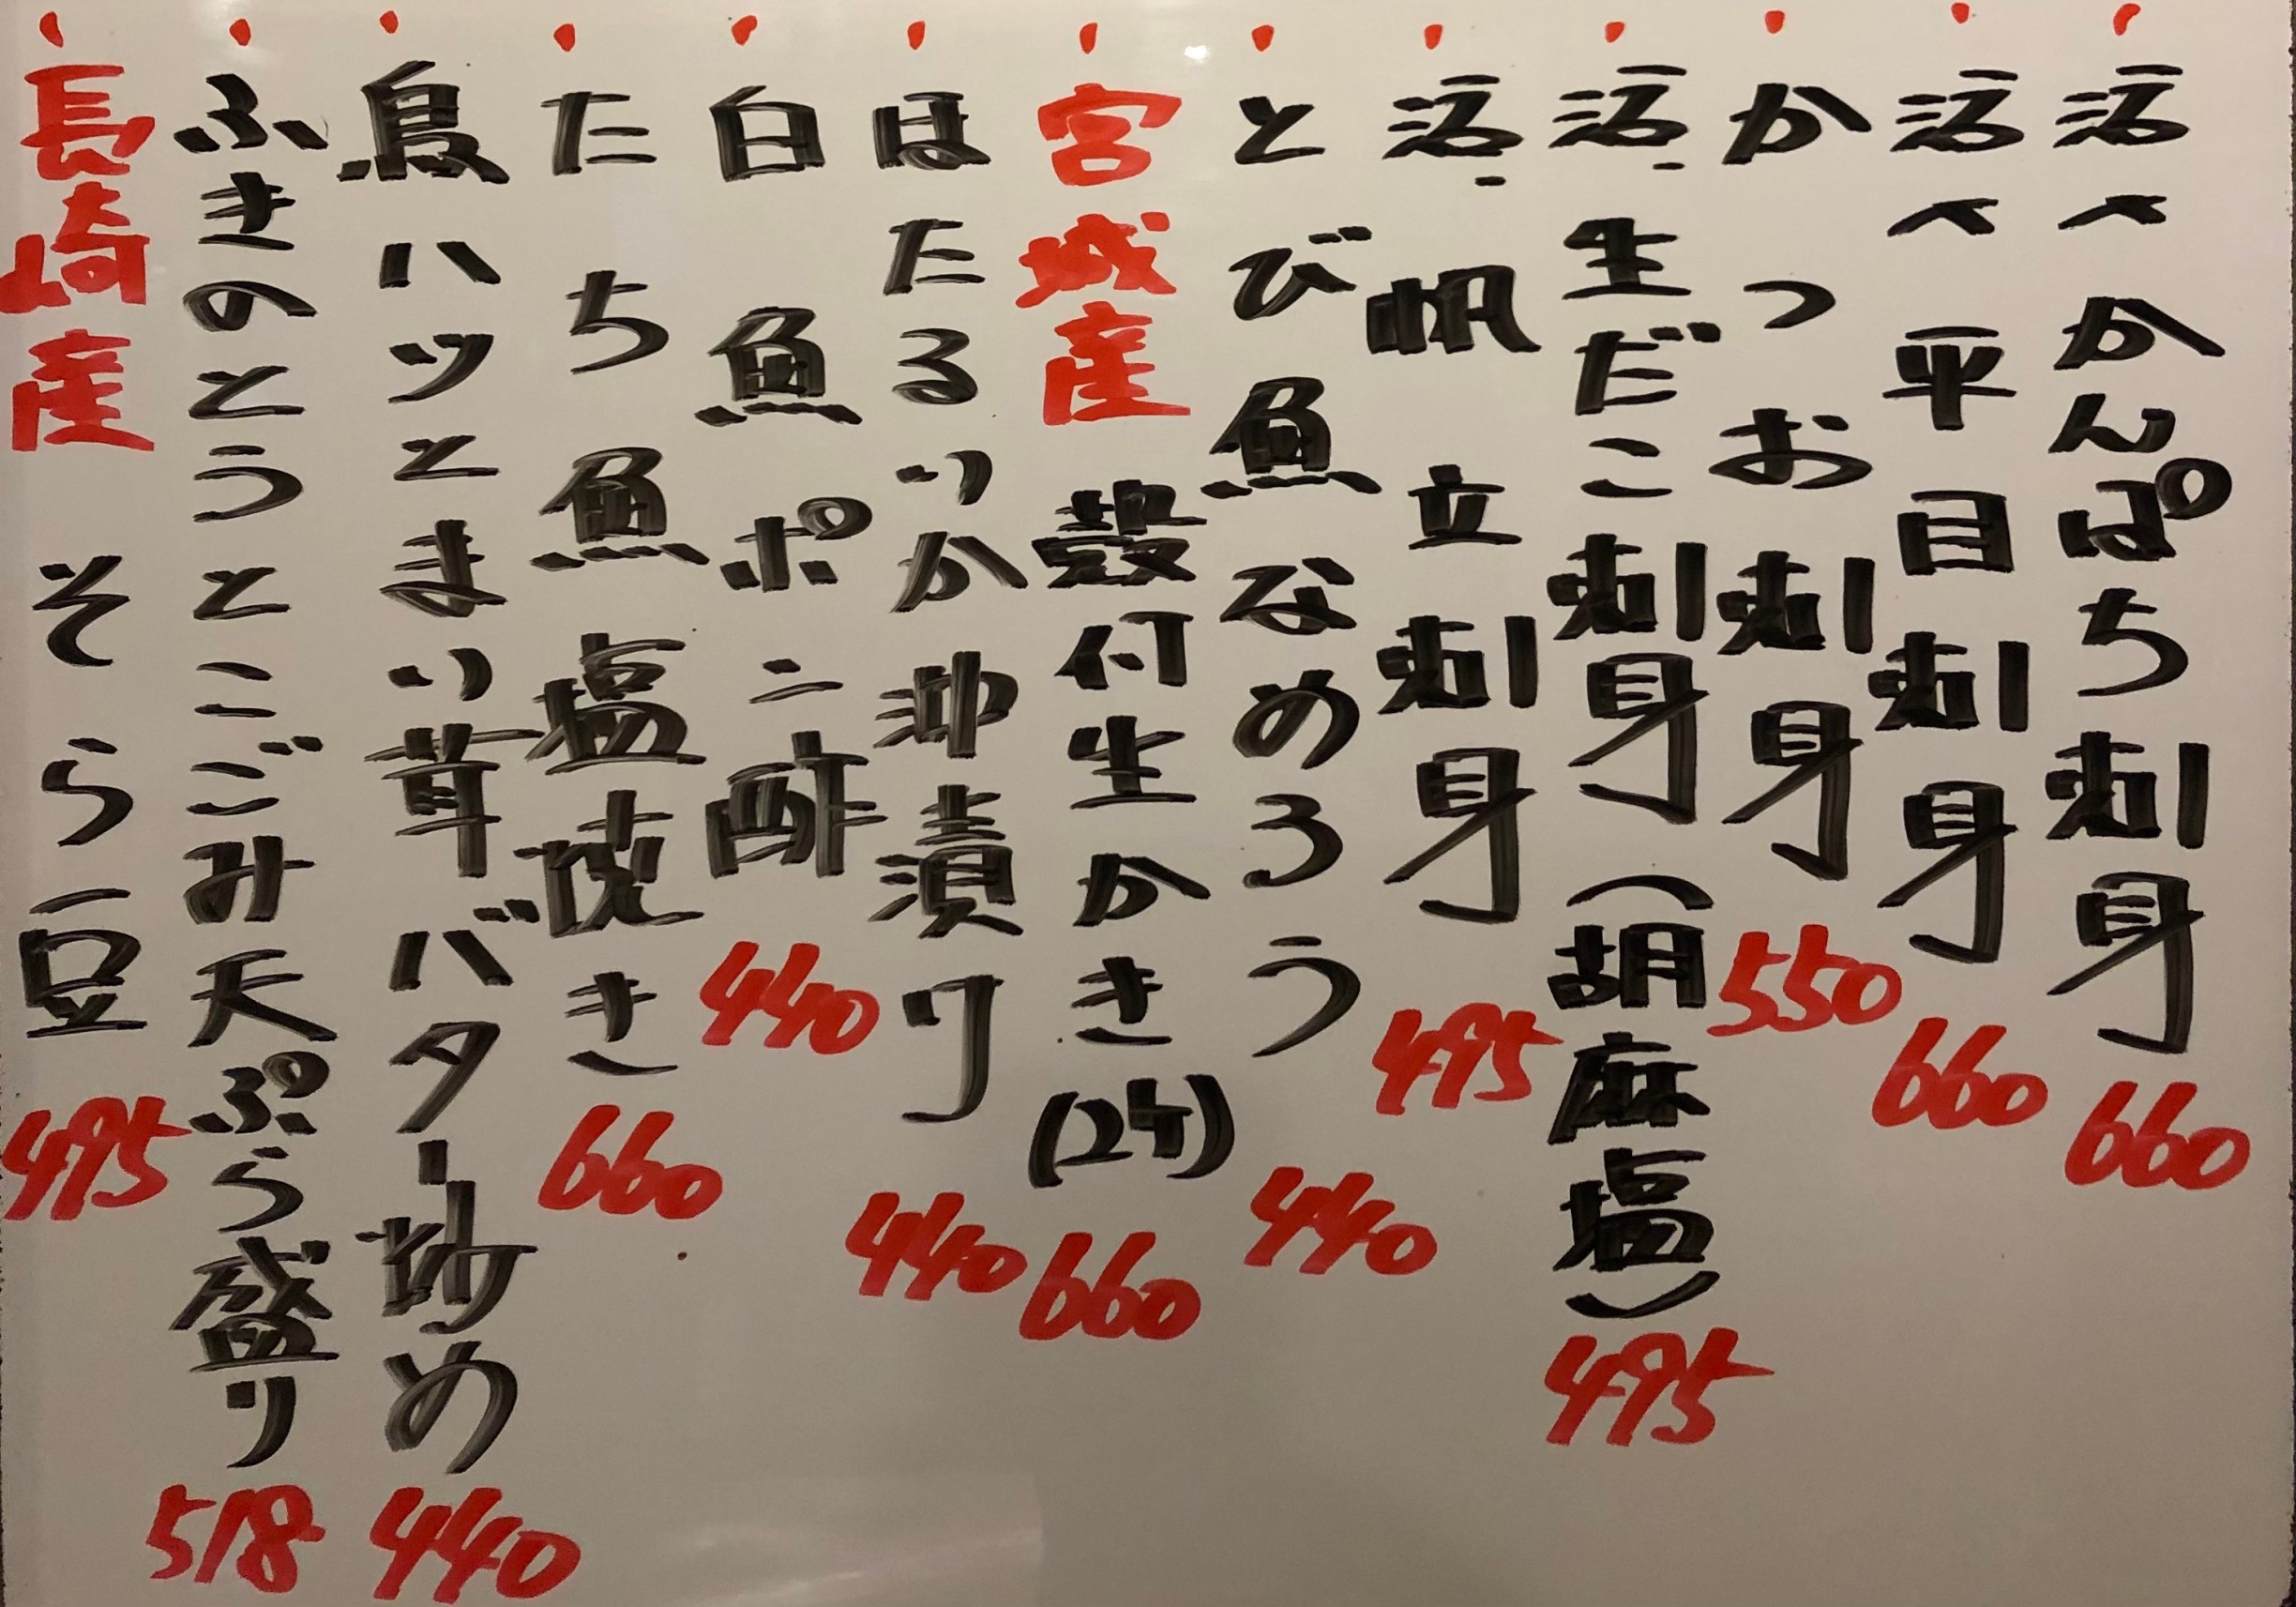 活〆かんぱち刺身 660
活〆平目刺身 660
かつお刺身 550
活生だこ刺身(胡麻塩) 495
活帆立刺身 495
とび魚なめろう 440
宮城産 殻付生かき(2ケ) 660
ほたるいか沖漬け 440
白魚ポン酢 440
たち魚塩焼き 660
鳥ハツとまい茸バター炒め 440
ふきのとうとこごみ天ぷら盛り 518
長崎産 そら豆 495